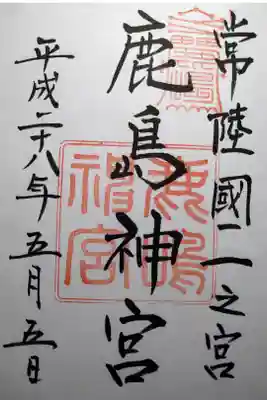 常陸國二之宮
鹿島神宮
平成二十八年五月五日
鹿嶋
神宮